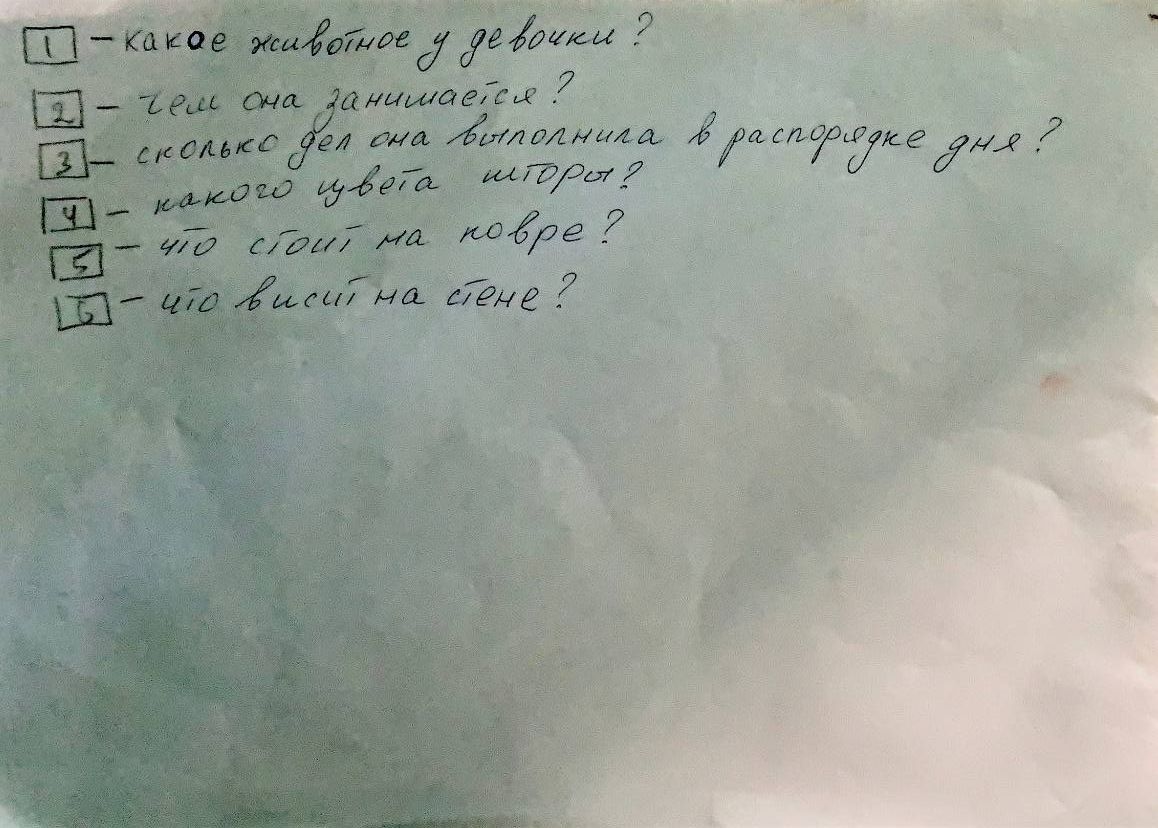 1 – какое животное у девочки?
2 – чем она занимается?
3 – сколько дел она выполнила в распорядке дня?
4 – какого цвета шторы?
5 – что стоит на ковре?
6 – что висит на стене?